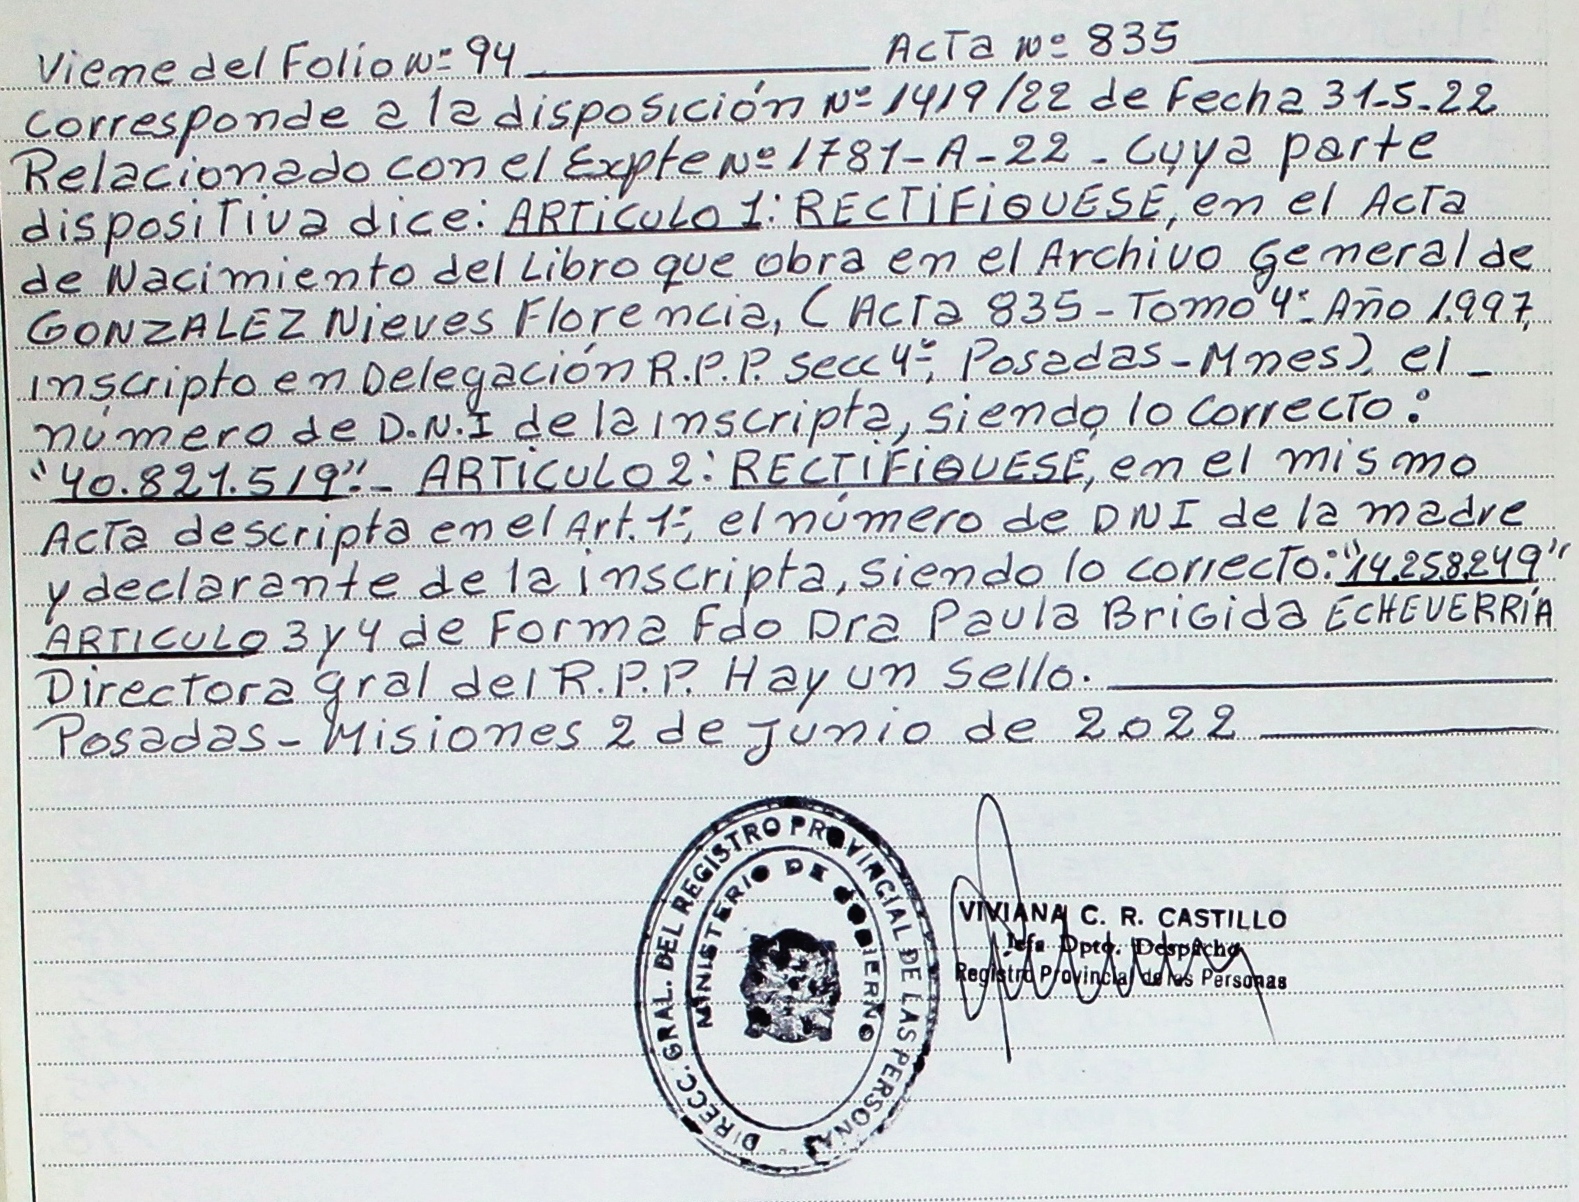 Viene del Folio Nº 94 ACTA Nº 835
Corresponde a la disposición Nº 1419/22 de Fecha 31-5-22
Relacionado con el Expte Nº 1781-A-22 - Cuya parte
dispositiva dice: ARTICULO 1: RECTIFIQUESE, en el Acta
de Nacimiento del Libro que obra en el Archivo General de
GONZALEZ Nieves Florencia, (Acta 835 - Tomo 4º - Año 1.997,
inscripto en Delegación R.P.P. Secc 4º, Posadas - Mnes), el -
número de D.N.I de la inscripta, siendo lo correcto:
"40.821.519". - ARTICULO 2: RECTIFIQUESE, en el mismo
Acta descripta en el Art. 1º, el número de DNI de la madre
y declarante de la inscripta, siendo lo correcto: "14.258.249"
ARTICULO 3 y 4 de Forma Fdo Dra Paula Brigida ECHEVERRÍA
Directora gral del R.P.P. Hay un Sello.
Posadas - Misiones 2 de Junio de 2022
DIRECC. GRAL. DEL REGISTRO PROVINCIAL DE LAS PERSONAS
MINISTERIO DE GOBIERNO
VIVIANA C. R. CASTILLO
Jefa Dpto. Despacho
Registro Provincial de las Personas